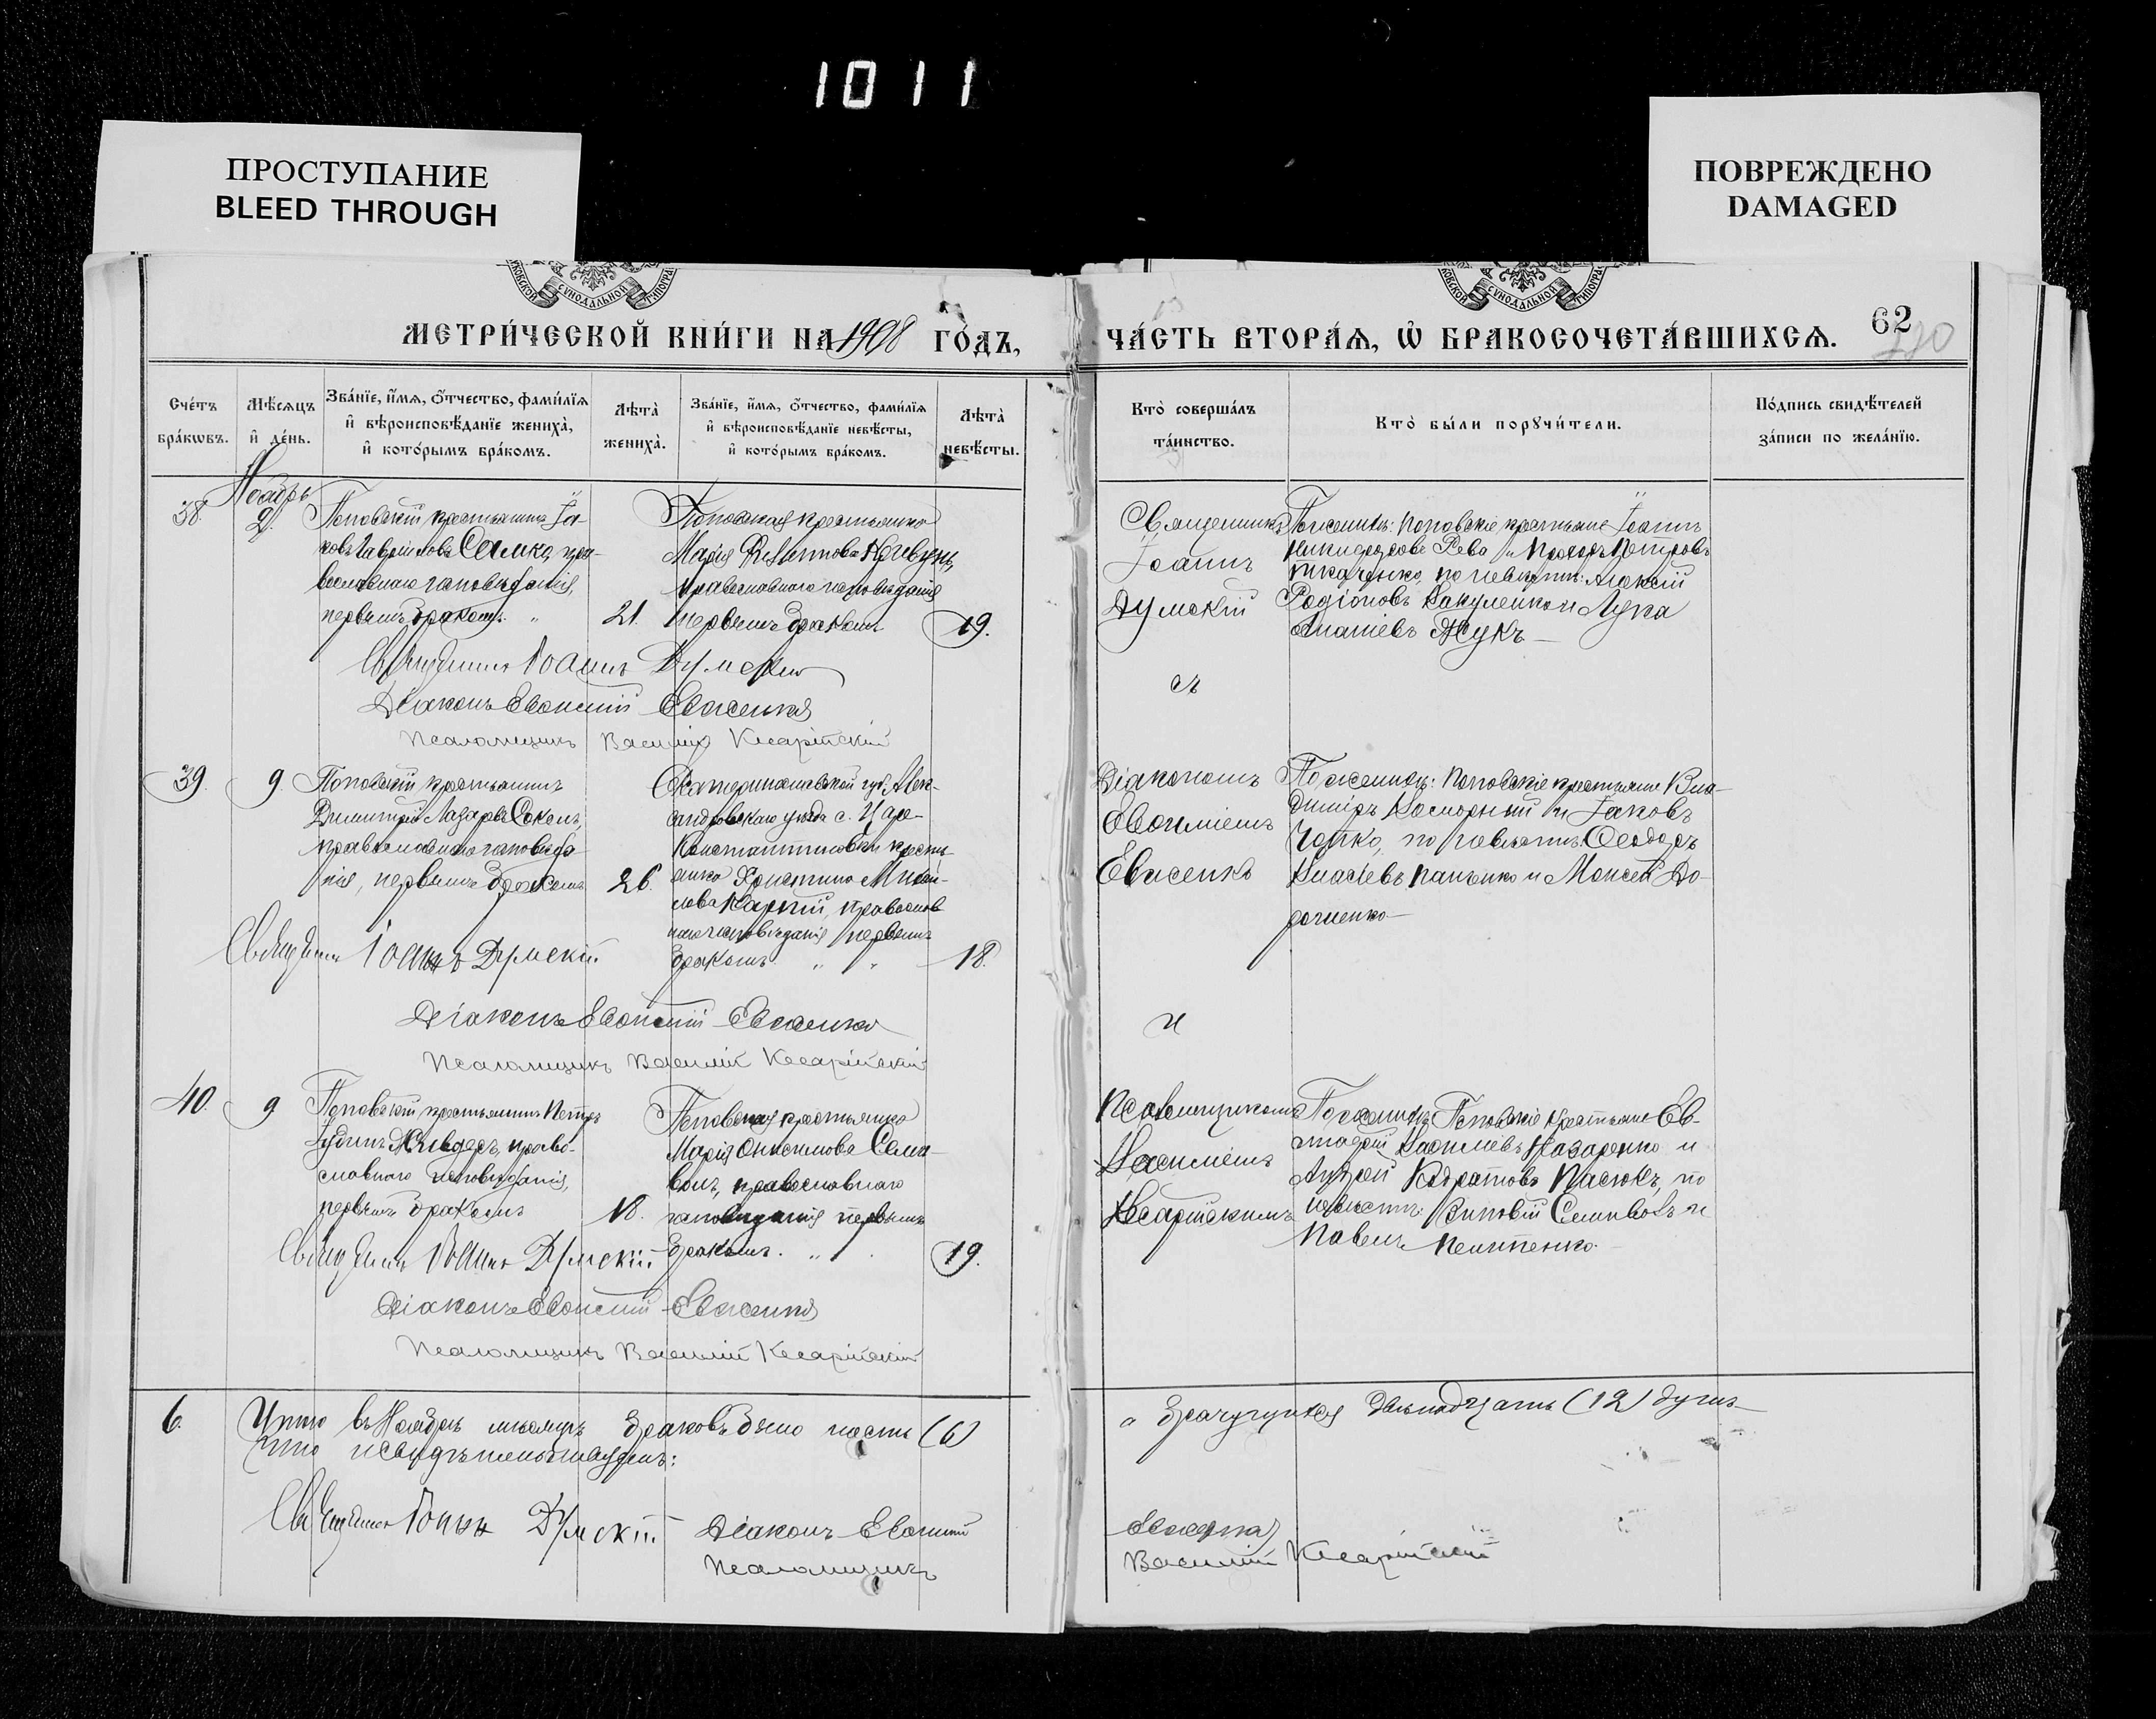 1011
ПРОСТУПАНИЕ
BLEED THROUGH
ПОВРЕЖДЕНО
DAMAGED
МЕТРИ́ЧЕСКОЙ КНИ́ГИ НА 1908 ГО́ДЪ,
ЧА́СТЬ ВТОРА́Ѧ, Ѽ БРАКОСОЧЕТА́ВШИХСѦ.
62
Сче́тъ
бра́кѡвъ.
Мѣ́сѧцъ
и҆ де́нь.
Зва́нїе, и҆́мѧ, ѻ҆́тчество, фами́лїѧ
и҆ вѣроисповѣ́данїе жениха̀,
и҆ кото́рымъ бра́комъ.
Лѣта̀
жениха̀.
Зва́нїе, и҆́мѧ, ѻ҆́тчество, фами́лїѧ
и҆ вѣроисповѣ́данїе невѣ́сты,
и҆ кото́рымъ бра́комъ.
Лѣта̀
невѣ́сты.
Кто̀ соверша́лъ
та́инство.
Кто̀ бы́ли порꙋчи́тели.
По́дпись свидѣ́телей
за́писи по жела́нїю.
Ноябрь
38.
2.
Поповскій крестьянинъ Іа-
ковъ Гавріиловъ Семко, пра-
вославнаго исповѣданія,
первымъ бракомъ. „
21.
Поповская крестьянка
Марія
православнаго исповѣданія
первымъ бракомъ
19.
Священникъ
Іоаннъ
Думскій
По женихѣ: поповскіе крестьяне Іоаннъ
Никифоровъ Рева и Петровъ
Ткаченко, по невѣстѣ: Алексій
Родіоновъ Акуленко и Лука
Ананіевъ Жукъ
Священникъ Іоаннъ Думскій
съ
Діаконъ Евѳимій Евсенко
Псаломщикъ Василій Кесарійскій
39.
9.
Поповскій крестьянинъ
Димитрій Лазаревъ Соколъ,
православнаго исповѣда-
нія, первымъ бракомъ
26.
Екатеринославской губ. Алек-
сандровскаго уѣзда с. Царе-
Константиновки кресть-
янка Христина Михаи-
лова православ
наго исповѣданія первымъ
бракомъ „ „
18.
Діакономъ
Евѳиміемъ
Евсенко
По женихѣ: поповскіе крестьяне Вла-
диміръ и Іаковъ
по невѣстѣ: Ѳеодоръ
Власіевъ Папенко и Моисей До-
рошенко
Священникъ Іоаннъ Думскій
Діаконъ Евѳимій Евсенко
и
Псаломщикъ Василій Кесарійскій
40.
9
Поповскій крестьянинъ Петръ
право-
славнаго исповѣданія,
первымъ бракомъ
18.
Поповская крестьянка
Марія Онисимова Сели-
вонъ, православнаго
исповѣданія первымъ
бракомъ. „ .
19.
Псаломщикомъ
Василіемъ
Кесарійскимъ
По женихѣ: Поповскіе крестьяне Ев-
Василіевъ Назаренко и
Андрей Кодратовъ Пасюкъ, по
невѣстѣ: Зиновій и
Павелъ
Священникъ Іоаннъ Думскій
Діаконъ Евѳимій Евсенко
Псаломщикъ Василій Кесарійскій
6.
Итого въ Ноябрѣ мѣсяцѣ браковъ было шесть (6)
а двѣнадцать (12) душъ
Что и свидѣтельствуемъ:
Священникъ Іоаннъ Думскій Діаконъ Евѳимій
Евсенко
Псаломщикъ
Василій Кесарійскій